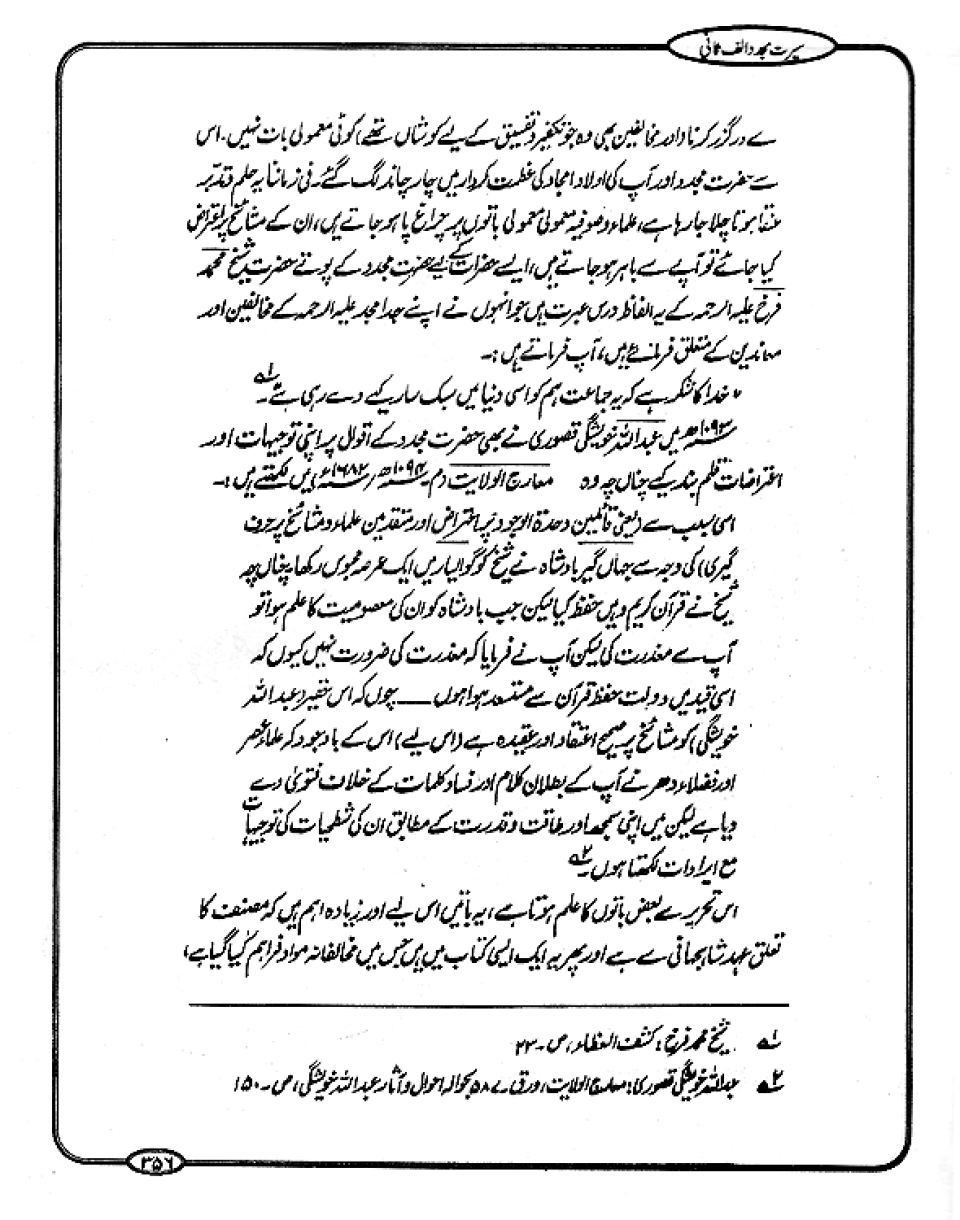 سیرت مجدد الف ثانی
سے درگزر کرنا (اور مخالفین بھی وہ جو تکفیر و تفسیق کے لیے کوشاں تھے) کوئی معمولی بات نہیں۔ اس
سے حضرت مجدد اور آپ کی اولاد امجاد کی عظمت کردار میں چار چاند لگ گئے۔ فی زماننا یہ حلم و تدبر
عنقا ہوتا چلا جا رہا ہے، علماء و صوفیہ معمولی معمولی باتوں پر چراغ پا ہو جاتے ہیں، ان کے مشائخ پر اعتراض
کیا جائے تو آپے سے باہر ہو جاتے ہیں، ایسے حضرات کے لیے حضرت مجدد کے پوتے حضرت شیخ محمد
فرخ علیہ الرحمہ کے یہ الفاظ درس عبرت ہیں جو انہوں نے اپنے جد امجد علیہ الرحمہ کے مخالفین اور
معاندین کے متعلق فرمائے ہیں، آپ فرماتے ہیں :۔
"خدا کا شکر ہے کہ یہ جماعت ہم کو اسی دنیا میں سبک سار کیے دے رہی ہے۔ ۱؎
۱۰۹۳ھ میں عبداللہ خویشگی قصوری نے بھی حضرت مجدد کے اقوال پر اپنی توجیہات اور
اعتراضات قلم بند کیے چناں چہ وہ معارج الولایت (م۔ ۱۰۹۴ھ/ ۱۶۸۲ء) میں لکھتے ہیں :۔
اسی سبب سے (یعنی قائلین وحدۃ الوجود پر اعتراض اور متقدمین علماء و مشائخ پر حرف
گیری) کی وجہ سے جہاں گیر بادشاہ نے شیخ کو گوالیار میں ایک عرصہ محبوس رکھا، چناں چہ
شیخ نے قرآن کریم وہیں حفظ کیا لیکن جب بادشاہ کو ان کی معصومیت کا علم ہوا تو
آپ سے معذرت کی لیکن آپ نے فرمایا کہ معذرت کی ضرورت نہیں کیوں کہ
اسی قید میں دولت حفظ قرآن سے مستسعد ہوا ہوں ــــ چوں کہ اس حقیر (عبداللہ
خویشگی) کو مشائخ پر صحیح اعتقاد اور عقیدہ ہے (اس لیے) اس کے باوجود کہ علماء عصر
اور فضلاء دھر نے آپ کے بطلان کلام اور فساد کلمات کے خلاف فتویٰ دے
دیا ہے لیکن میں اپنی سمجھ اور طاقت و قدرت کے مطابق ان کی شطحیات کی توجیہات
مع ایرادات لکھتا ہوں۔ ۲؎
اس تحریر سے بعض باتوں کا علم ہوتا ہے، یہ باتیں اس لیے اور زیادہ اہم ہیں کہ مصنف کا
تعلق عہد شاہجہانی سے ہے اور پھر یہ ایک ایسی کتاب میں ہیں جس میں مخالفانہ مواد فراہم کیا گیا ہے،
۱؎ شیخ محمد فرخ: کشف الغطاء، ص۔ ۲۳
۲؎ عبداللہ خویشگی قصوری: معارج الولایت، ورق ۵۸۷ بحوالہ احوال و آثار عبداللہ خویشگی، ص۔ ۱۵۰
۳۵۶